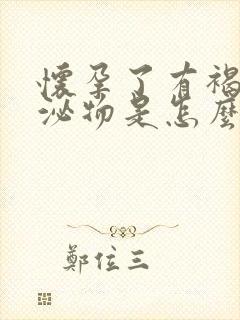 懷孕了有褐
泌物是怎麼
鄭位三